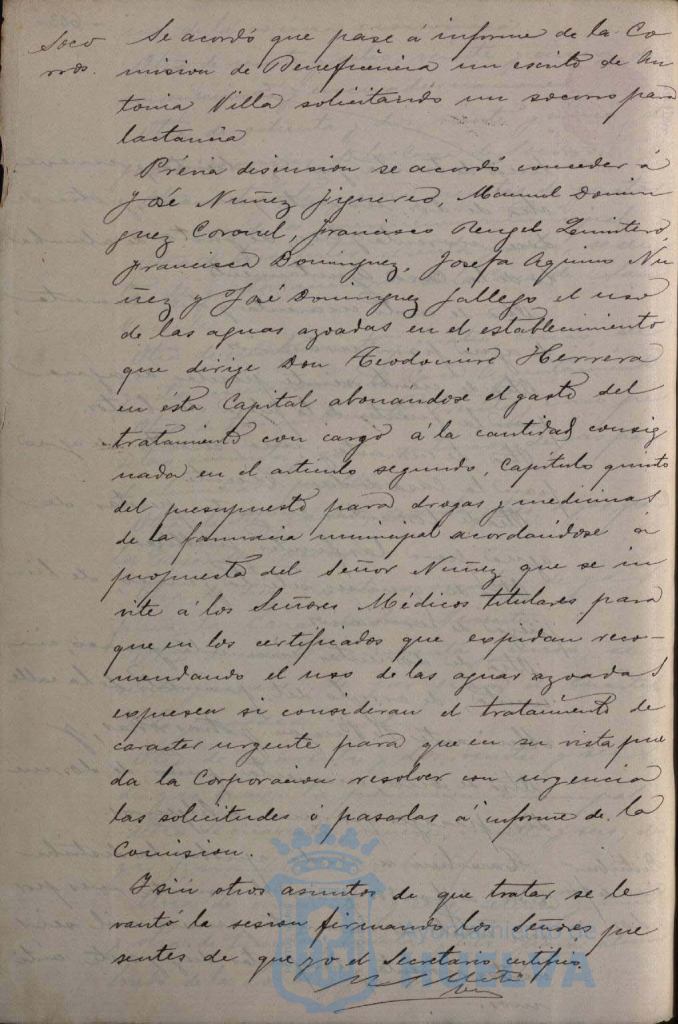 Soco
rros.
Se acordó que pase á informe de la Co
mision de Beneficencia un escrito de An
tonia Villa solicitando un socorro para
lactancia
Prévia discusion se acordó conceder á
José Nuñez Figuereo, Manuel Domin
guez Coronel, Francisco Rengel Quintero,
Francisca Dominguez, Josefa Aquino Nu
ñez y José Dominguez Gallego el uso
de las aguas azoadas en el establecimiento
que dirige Don Teodomiro Herrera
en ésta Capital abonándose el gasto del
tratamiento con cargo á la cantidad consig
nada en el articulo segundo, Capítulo quinto
del presupuesto para drogas y medicinas
de la farmacia municipal acordándose á
propuesta del Señor Nuñez que se in
vite á los Señores Médicos titulares para
que en los certificados que expidan reco-
mendando el uso de las aguas azoadas
expresen si consideran el tratamiento de
caracter urgente para que en su vista pue
da la Corporacion resolver con urgencia
las solicitudes ó pasarlas á informe de la
Comision.
I sin otros asuntos de que tratar se le
vantó la sesion firmando los Señores pre
sentes de que yo el Secretario certifico.
Ayuntamiento de
HUELVA